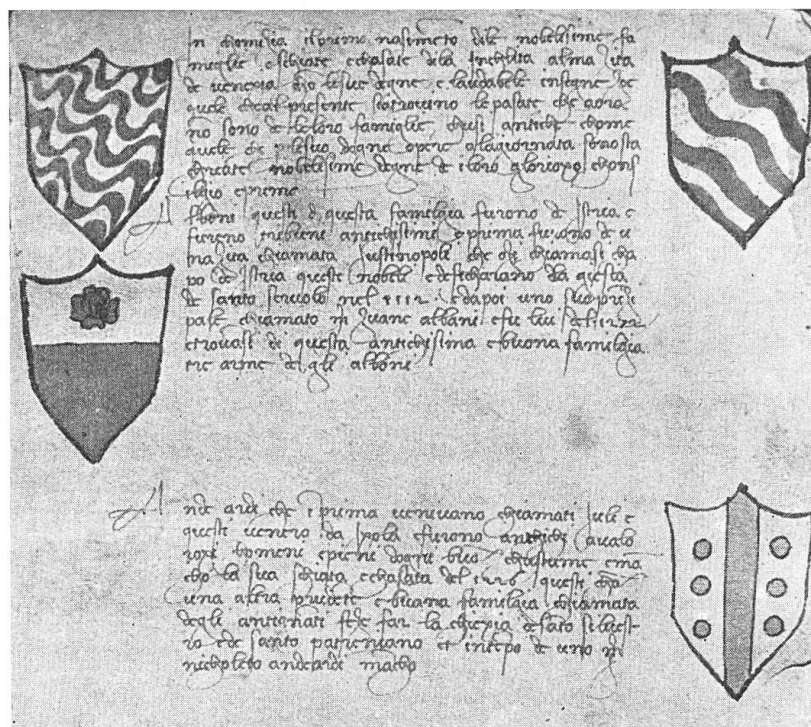 1
In chomiza il primo nasimeto dele nobelisime fa
meglie e schiate e chasate dela inchlita alma zita
de venexia chō le sue degne e laudabele insegne de
quele che al presente si atrovano le pasate che aora
nō sono de le loro famiglie, chusi antiche chome
quele che p le suo degne opere a la giornata sono sta
chreate nobelisime degne de i loro glorioxo chons
ilgio e prime
Albani questi de questa familgia furono de Istria e
fureno tribuni antichisimi e prima furono de u
na zita chiamata Justinopoli che ozi chiamasi cha
po de Istria questi nobeli edefichariano la giexia
de santo servolo nel e dapoi uno suo prīzi
pale chiamato m zuane albani e fu lui del
etrovasi di questa antichisima e buona familgia
tre arme de gli albani
Andeardi che i prima venivano chiamati e
questi venero da Ixola e furono antichi e valo
roxi homeni e pieni dogni buō chostume e mā
cho la sua schiata e chasata del questi chō
una altra prudēte e buona familgia chiamata
degli antignati fede far la chiexia de sāto silvest
ro e de santo paterniano et intēpo de uno m
nicholeto andeardi macho